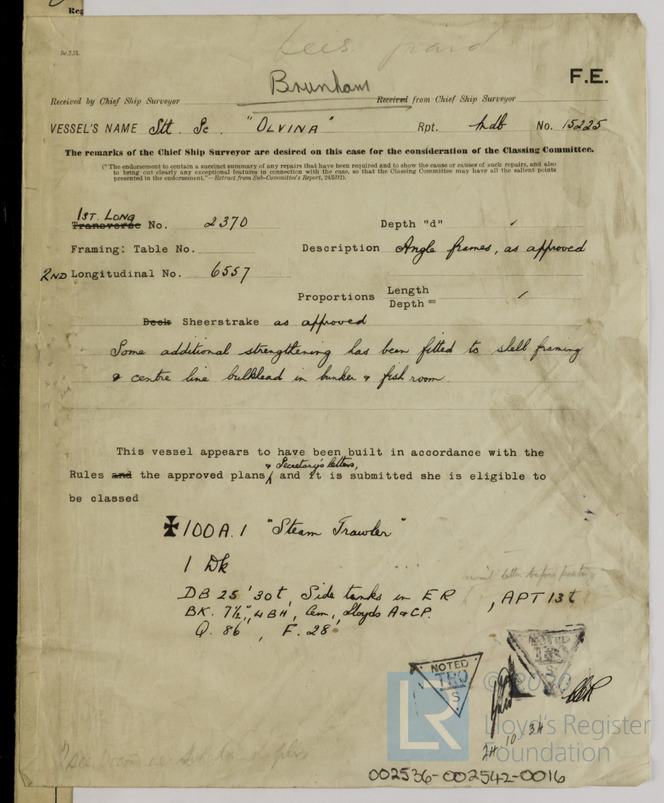 Reg
fees paid
Brunham
F.E.
Received by Chief Ship Surveyor Received from Chief Ship Surveyor
VESSEL'S NAME Stl. Sc. "OLVINA" Rpt. Hdb No. 15225
The remarks of the Chief Ship Surveyor are desired on this case for the consideration of the Classing Committee.
("The endorsement to contain a succinct summary of any repairs that have been required and to show the cause or causes of such repairs, and also
to bring out clearly any exceptional features in connection with the case, so that the Classing Committee may have all the salient points
presented in the endorsement."—Extract from Sub-Committee's Report,
1ST. LONG
Transverse No. 2370 Depth "d"
Framing: Table No. Description Angle frames, as approved
2ND Longitudinal No. 6557
Proportions Length
Depth =
Deck Sheerstrake as approved
Some additional strengthening has been fitted to shell framing
& centre line bulkhead in bunker & fish room.
This vessel appears to have been built in accordance with the
& Secretary's letters,
Rules and the approved plans and it is submitted she is eligible to
be classed
✠ 100A.1 "Steam Trawler"
1 Dk
DB 25' 30t, Side tanks in ER, APT 13t
BK. 7½", 4BH, Cem, Lloyds A&CP.
Q. 86', F. 28'
NOTED
NOTED
TRO
S
S
LR
© 2020
Lloyd's Register
Foundation
002536-002542-0016